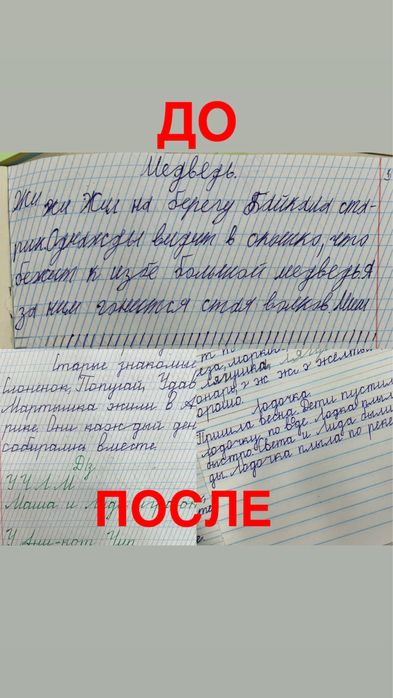 ДО
Медведь.
Жи жи Жил на берегу Байкала ста-
рик Однажды видит в окошко, что
бежит к избе большой медведья
за ним гонится стая волков Миш
Старые знакомые
Слоненок, Попугай, Удав
Мартышка жили в А
рике. Они каждый ден
собирались вместе.
Дз
У У Л М
Маша и
лягушка,
ж ж
хорошо.
Лодочка.
Пришла весна Дети пустил
лодочку по воде Лодка плыл
быстро Света и Лида были
ды. Лодочка плыла по реке
ПОСЛЕ